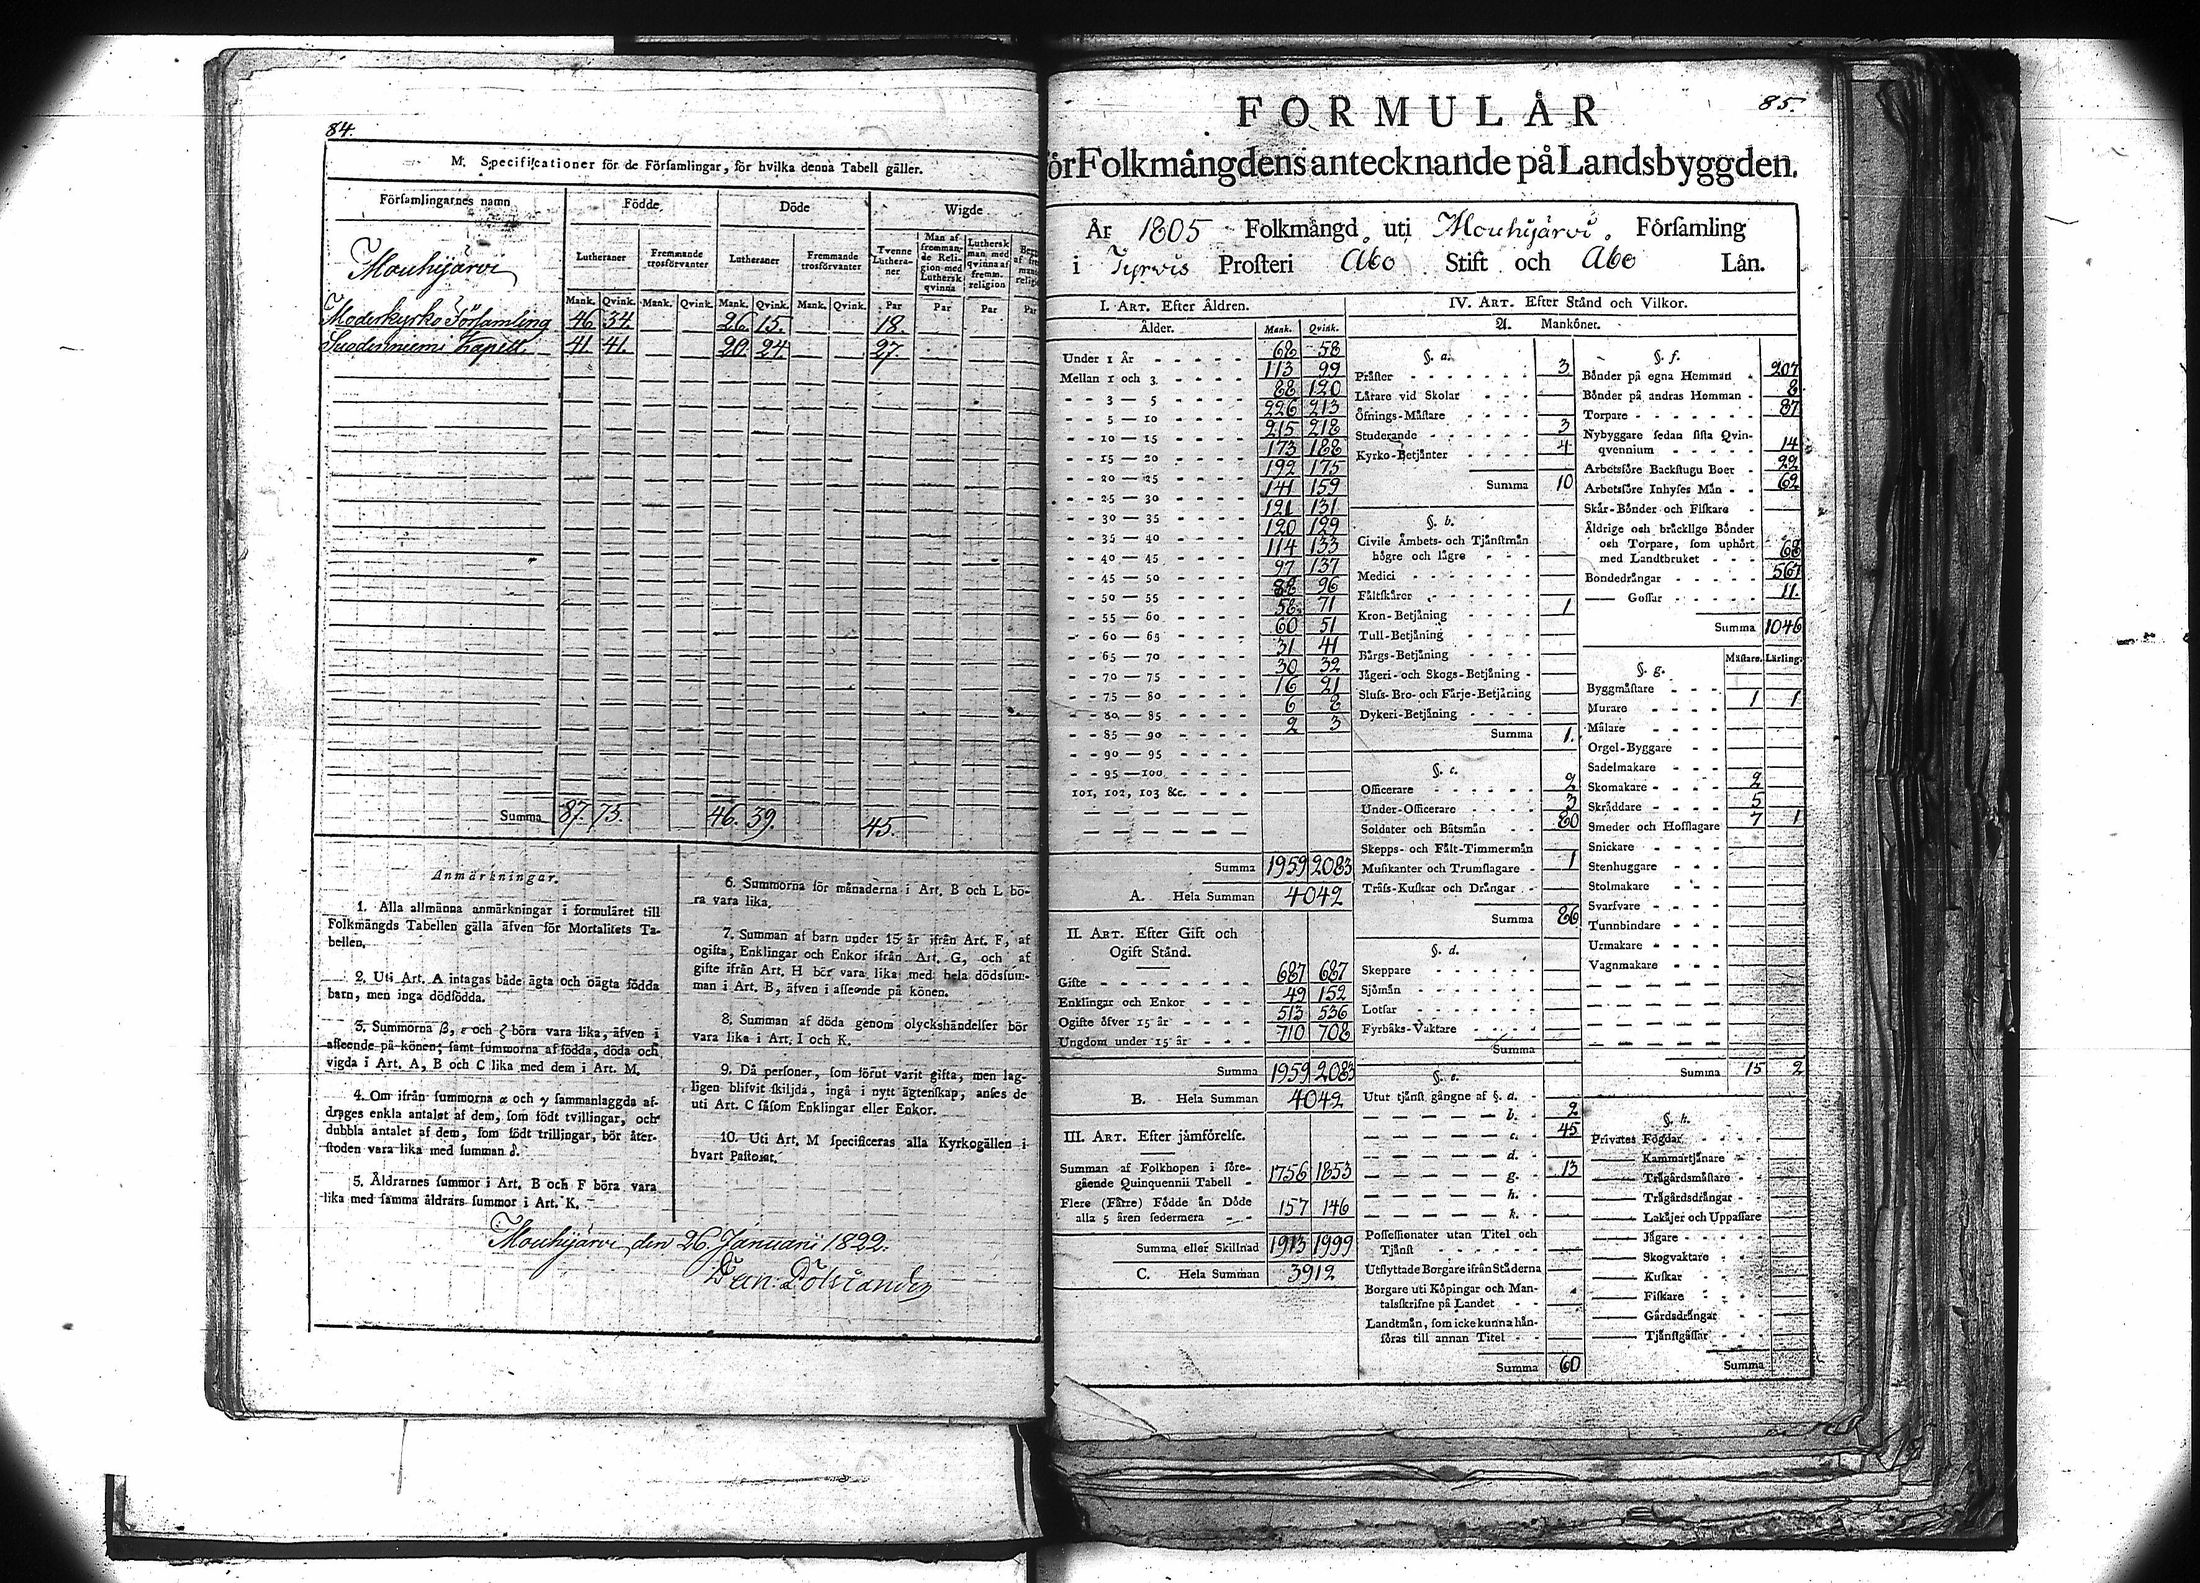 84.
M. Specificationer för de Församlingar, för hvilka denna Tabell gäller.
Församlingarnes namn Födde Döde Wigde
Lutheraner Fremmande trosförvanter Lutheraner Fremmande trosförvanter Tvenne Lutheraner Man af fremmande Religion med Luthersk qvinna Luthersk man med qvinna af fremm. religion
Mank. Qvink. Mank. Qvink. Mank. Qvink. Mank. Qvink. Par Par Par Par
Mouhijärvi
Moderkyrko Församling 46 34. 26. 15. 18.
Suodenniemi Kapell. 41. 41. 20. 24. 27.
Summa 87. 75. 46. 39. 45.
Anmärkningar.
1. Alla allmänna anmärkningar i formuläret till
Folkmängds Tabellen gälla äfven för Mortalitets Ta-
bellen.
2. Uti Art. A intagas både ägta och oägta födda
barn, men inga dödfödda.
3. Summorna β, ε och ζ böra vara lika, äfven i
afseende på könen; samt summorna af födda, döda och
vigda i Art. A, B och C lika med dem i Art. M.
4. Om ifrån summorna α och γ sammanlagda af-
drages enkla antalet af dem, som födt tvillingar, och
dubbla antalet af dem, som födt trillingar, bör åter-
stoden vara lika med summan δ.
5. Åldrarnes summor i Art. B och F böra vara
lika med samma åldrars summor i Art. K.
6. Summorna för månaderna i Art. B och L bö-
ra vara lika.
7. Summan af barn under 15 år ifrån Art. F, af
ogifta, Enklingar och Enkor ifrån Art. G, och af
gifte ifrån Art. H bör vara lika med hela dödssum-
man i Art. B, äfven i afseende på könen.
8. Summan af döda genom olyckshändelser bör
vara lika i Art. I och K.
9. Då personer, som förut varit gifta, men lag-
ligen blifvit skiljda, ingå i nytt ägtenskap, anses de
uti Art. C såsom Enklingar eller Enkor.
10. Uti Art. M specificeras alla Kyrkogällen i
hvart Pastorat.
Mouhijärvi den 26 Januarii 1822.
85.
FORMULÅR
för Folkmångdens antecknande på Landsbyggden.
År 1805 Folkmångd uti Mouhijärvi Församling
i Tyrvis Prosteri Åbo Stift och Åbo Lån.
I. ART. Efter Åldren.
Ålder. Mank. Qvink.
Under 1 År 68 58
Mellan 1 och 3 113 99
3 — 5 88 120
5 — 10 226 213
10 — 15 215 218
15 — 20 173 188
20 — 25 192 175
25 — 30 141 159
30 — 35 121 131
35 — 40 120 129
40 — 45 114 133
45 — 50 97 137
50 — 55 88 96
55 — 60 58 71
60 — 65 60 51
65 — 70 31 41
70 — 75 30 32
75 — 80 16 21
80 — 85 6 8
85 — 90 2 3
90 — 95
95 — 100
101, 102, 103 &c.
Summa 1959 2083
A. Hela Summan 4042
II. ART. Efter Gift och
Ogift Stånd.
Gifte 687 687
Enklingar och Enkor 49 152
Ogifte öfver 15 år 513 536
Ungdom under 15 år 710 708
Summa 1959 2083
B. Hela Summan 4042
III. ART. Efter jåmförelse.
Summan af Folkhopen i före-
gående Quinquennii Tabell 1756 1853
Flere (Fårre) Födde ån Döde
alla 5 åren sedermera 157 146
Summa eller Skillnad 1913 1999
C. Hela Summan 3912
IV. ART. Efter Stånd och Vilkor.
A. Mankönet.
§. a.
Pråster 3
Lårare vid Skolar
Öfnings-Måstare
Studerande 3
Kyrko-Betjånter 4
Summa 10
§. b.
Civile Åmbets- och Tjånstmån
högre och lågre
Medici
Fåltskårer
Kron-Betjåning 1
Tull-Betjåning
Bårgs-Betjåning
Jågeri- och Skogs-Betjåning
Sluss- Bro- och Fårje-Betjåning
Dykeri-Betjåning
Summa 1.
§. c.
Officerare 2
Under-Officerare 3
Soldater och Båtsmån 80
Skepps- och Fålt-Timmermån
Musikanter och Trumslagare 1
Tråss-Kuskar och Drångar
Summa 86
§. d.
Skeppare
Sjömån
Lotsar
Fyrbåks-Vaktare
Summa
§. e.
Utur tjånst gångne af §. a.
b. 2
c. 45
d.
g. 13
h.
k.
Possessionater utan Titel och
Tjånst
Utflyttade Borgare ifrån Ståderna
Borgare uti Köpingar och Man-
talsskrifne på Landet
Landtmån, som icke kunna hån-
föras till annan Titel
Summa 60
§. f.
Bönder på egna Hemman 207
Bönder på andras Hemman 8
Torpare 87
Nybyggare sedan sista Qvin-
qvennium 14
Arbetsföre Backstugu Boer 22
Arbetsföre Inhyses Mån 62
Skår-Bönder och Fiskare
Åldrige och bråcklige Bönder
och Torpare, som uphört
med Landtbruket 68
Bondedrångar 567
—— Gossar 11.
Summa 1046
§. g. Mästare. Lärling.
Byggmåstare 1 1
Murare
Målare
Orgel-Byggare
Sadelmakare
Skomakare 2
Skråddare 5
Smeder och Hofslagare 7 1
Snickare
Stenhuggare
Stolmakare
Svarfvare
Tunnbindare
Urmakare
Vagnmakare
Summa 15 2
§. h.
Privates Fogdar
—— Kammartjånare
—— Trågårdsmåstare
—— Trågårdsdrångar
—— Lakåjer och Uppassare
—— Jågare
—— Skogvaktare
—— Kuskar
—— Fiskare
—— Gårdsdrångar
—— Tjånstgåssar
Summa